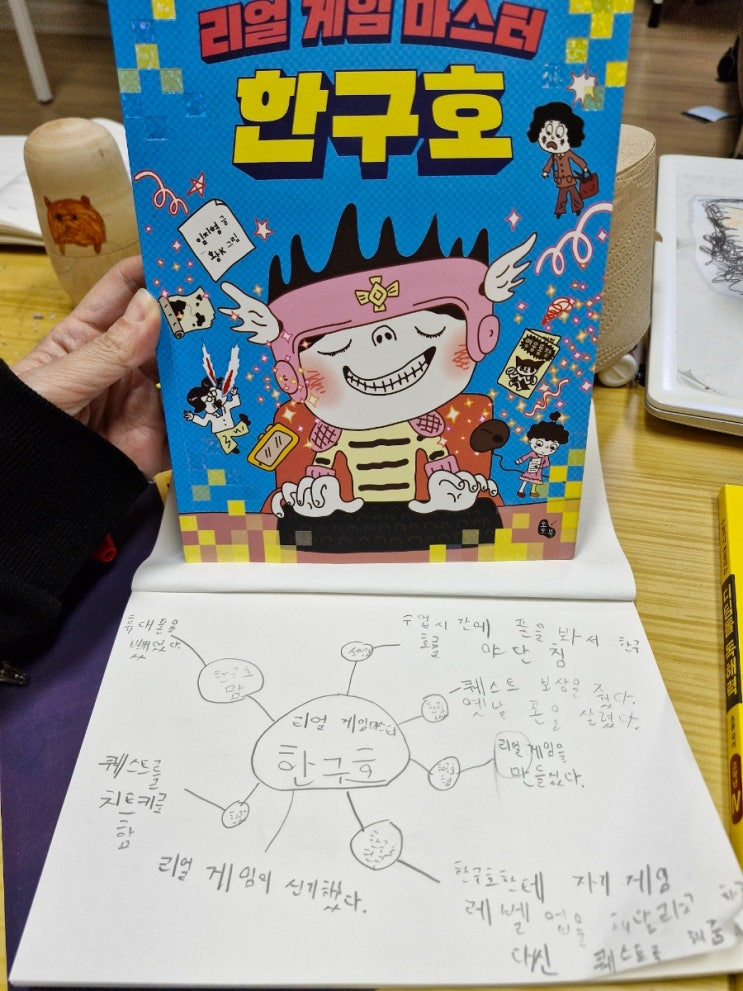 리얼 게임 마스터
한구호
임지형 글
황K 그림
휴대폰을
뺏었다.
한구호
맘
수업시간에 폰을 봐서 한구
호를 야단침
퀘스트 보상을 줬다.
옛날 폰을 살렸다.
리얼 게임마스터
한구호
리얼 게임을
만들었다.
퀘스트를
치트키로
함
리얼 게임이 신기했다.
한구호한테 자기 게임
레벨 업을 해달라고
대신 퀘스트를 해줌